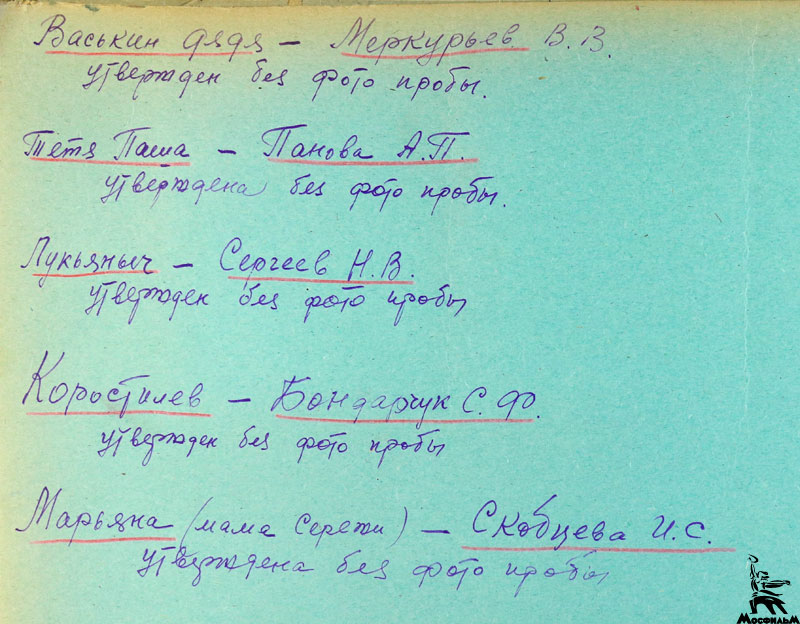 Васькин дядя – Меркурьев В. В.
утвержден без фото пробы.
Тетя Паша – Панова А.П.
утверждена без фото пробы.
Лукьяныч – Сергеев Н.В.
утвержден без фото пробы
Коростилев – Бондарчук С. Ф.
утвержден без фото пробы
Марьяна (мама Сережи) – Скобцева И.С.
утверждена без фото пробы
МОСФИЛЬМ